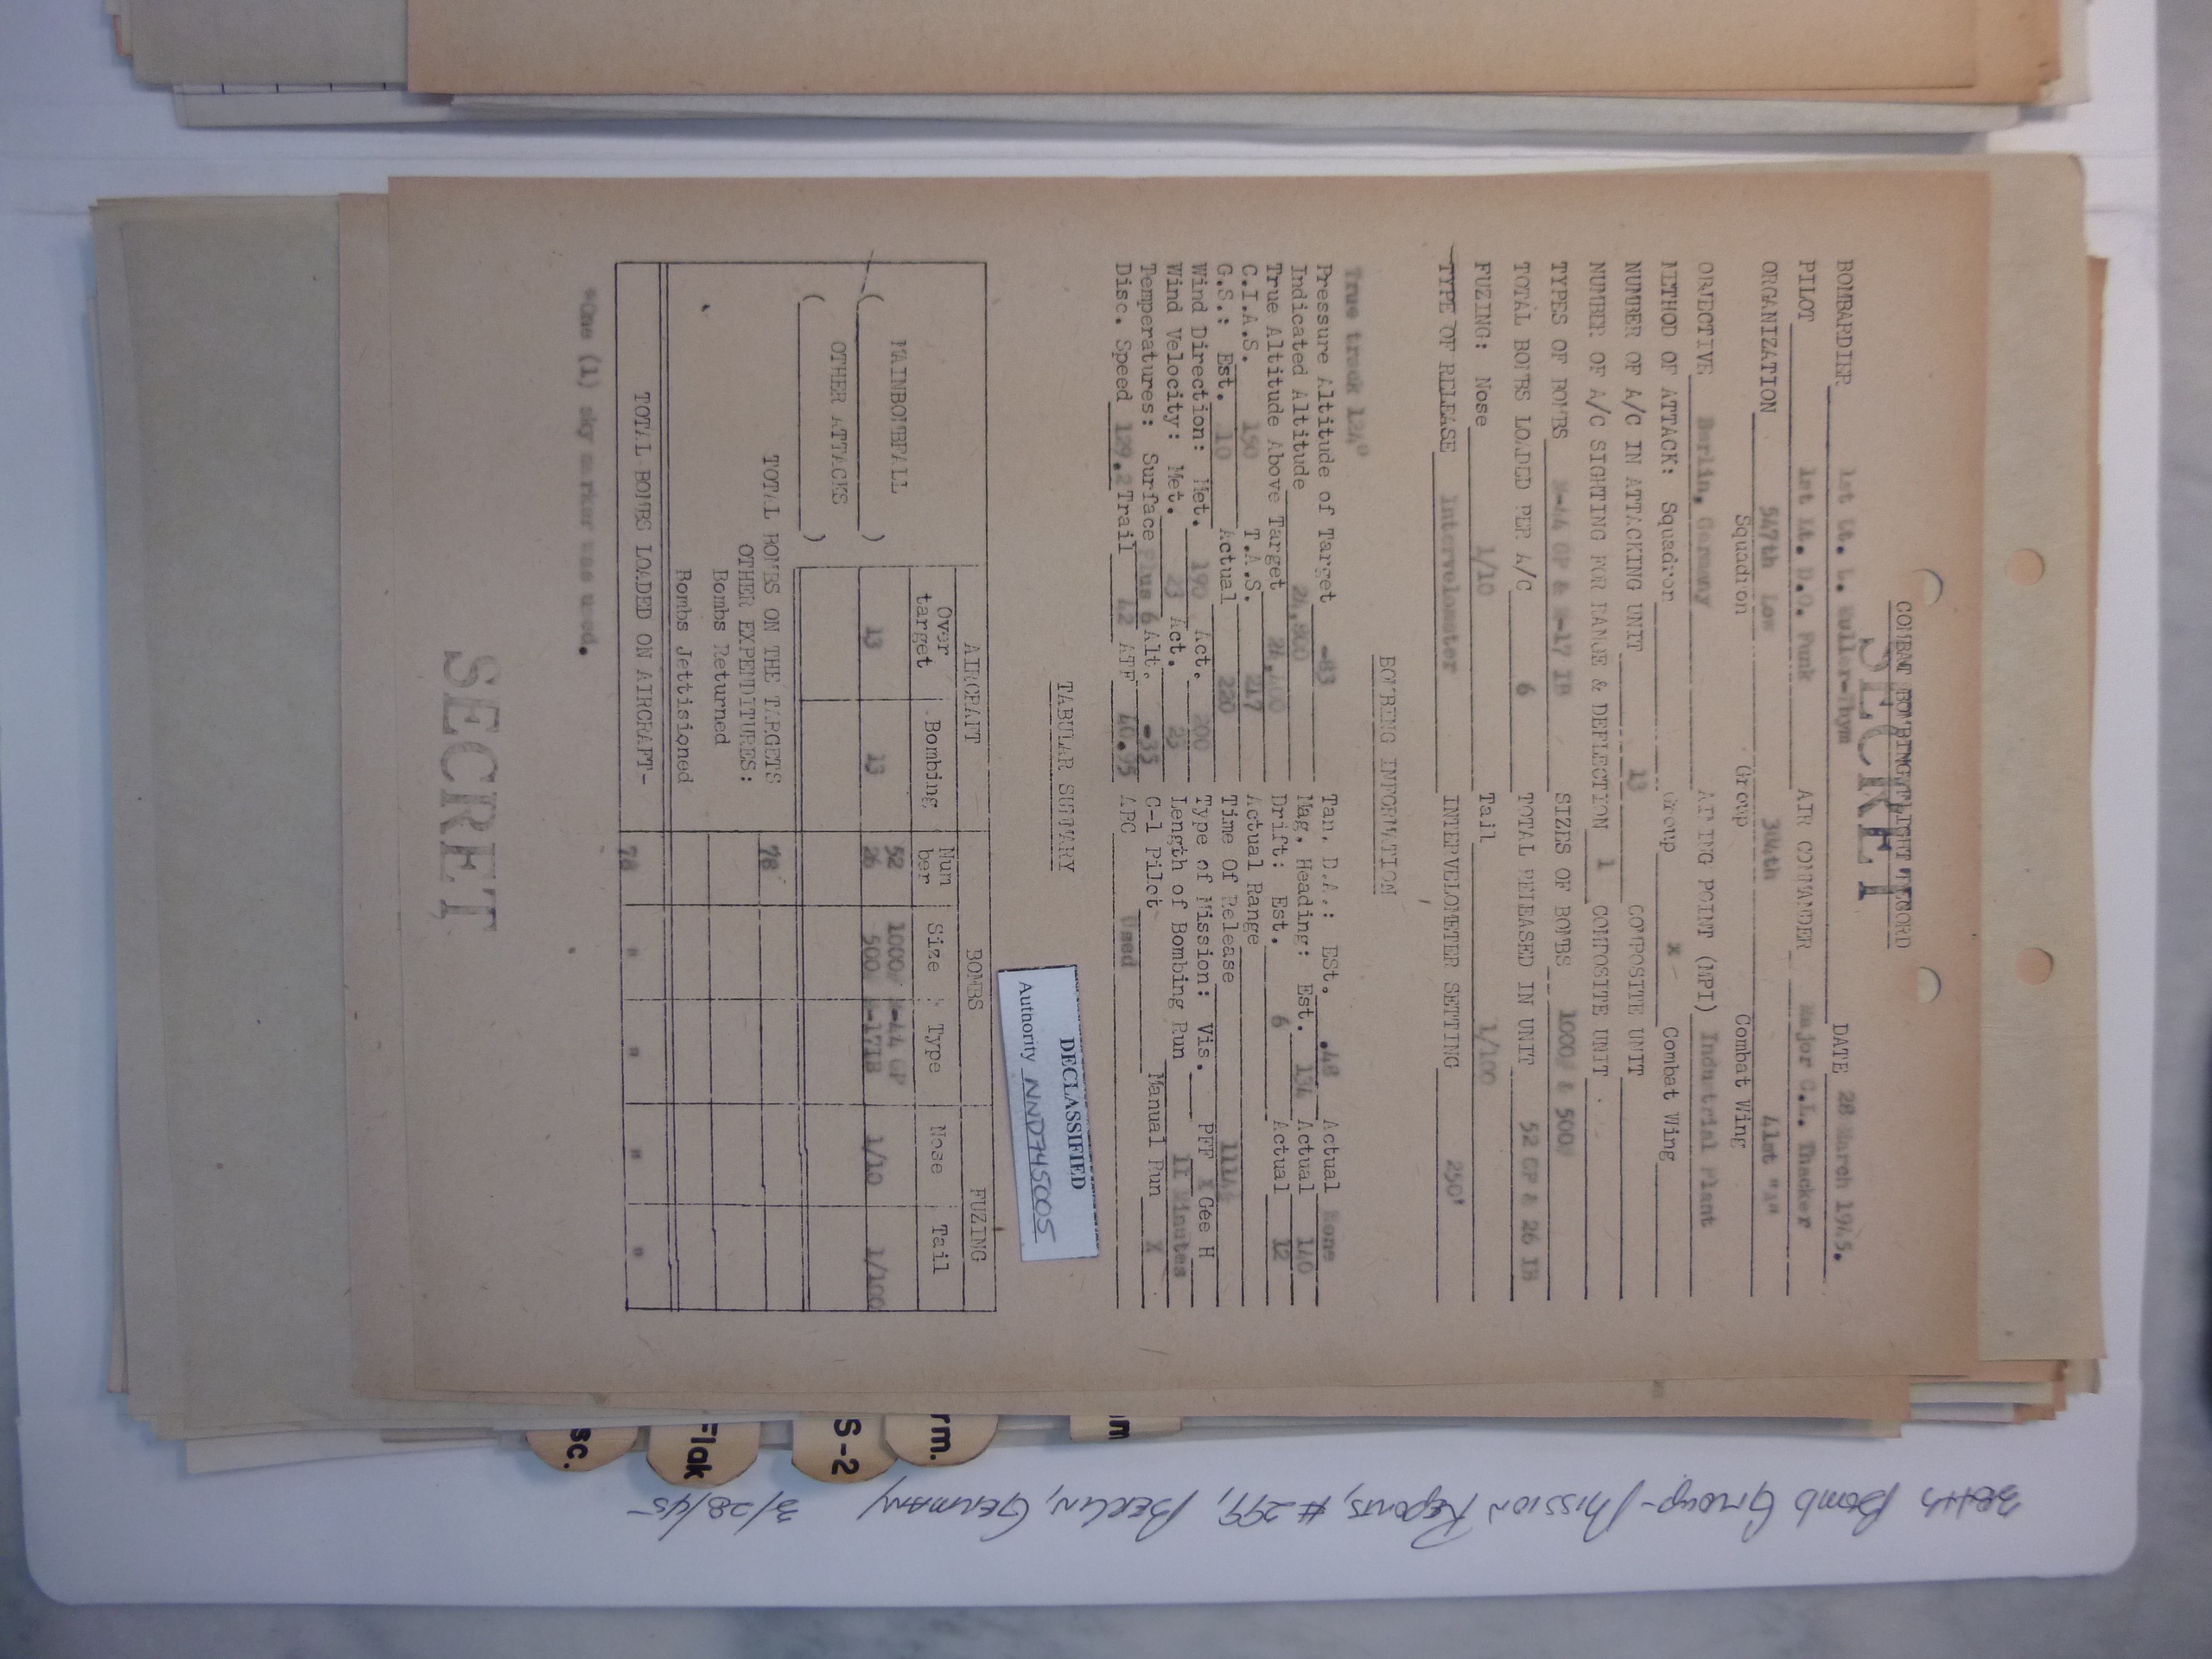 COMBAT BOMBING FLIGHT RECORD
SECRET
BOMBARDIER 1st Lt. L. Muller-Thym DATE 28 March 1945.
PILOT 1st Lt. D.O. Funk AIR COMMANDER Major C.L. Thacker
ORGANIZATION 547th Low 384th 41st "A"
Squadron Group Combat Wing
OBJECTIVE Berlin, Germany AIMING POINT (MPI) Industrial Plant
METHOD OF ATTACK: Squadron Group X Combat Wing
NUMBER OF A/C IN ATTACKING UNIT 13 COMPOSITE UNIT
NUMBER OF A/C SIGHTING FOR RANGE & DEFLECTION 1 COMPOSITE UNIT
TYPES OF BOMBS M-44 GP & M-17 IB SIZES OF BOMBS 1000# & 500#
TOTAL BOMBS LOADED PER A/C 6 TOTAL RELEASED IN UNIT 52 GP & 26 IB
FUZING: Nose 1/10 Tail 1/100
TYPE OF RELEASE Intervalometer INTERVELOMETER SETTING 250'
BOMBING INFORMATION
True track 124°
Pressure Altitude of Target -83 Tan. D.A.: Est. .48 Actual None
Indicated Altitude 24,800 Mag. Heading: Est. 134 Actual 140
True Altitude Above Target Drift: Est. 6 Actual 12
C.I.A.S. 150 T.A.S. 217 Actual Range
G.S.: Est. 10 Actual 220 Time Of Release
Wind Direction: Met. 190 Act. 200 Type of Mission: Vis. PFF X Gee H
Wind Velocity: Met. 23 Act. 23 Length of Bombing Run 11 Minutes
Temperatures: Surface Plus 6 Alt. -35 C-1 Pilot Manual Run X
Disc. Speed 129.2 Trail 42 ATF 40.95 AFC Used
TABULAR SUMMARY
AIRCRAFT BOMBS FUZING
Over target Bombing Number Size Type Nose Tail
MAINBOMBFALL 52 1000# M-44 GP
13 13 26 500# M-17IB 1/10 1/100
OTHER ATTACKS
TOTAL BOMBS ON THE TARGETS 78
OTHER EXPENDITURES:
Bombs Returned
Bombs Jettisioned
TOTAL BOMBS LOADED ON AIRCRAFT- 78 " " " "
*One (1) sky marker was used.
SECRET
DECLASSIFIED
Authority NND745005
rm.
S-2
Flak
sc.
384th Bomb Group - Mission Reports, #299, Berlin, Germany 3/28/45